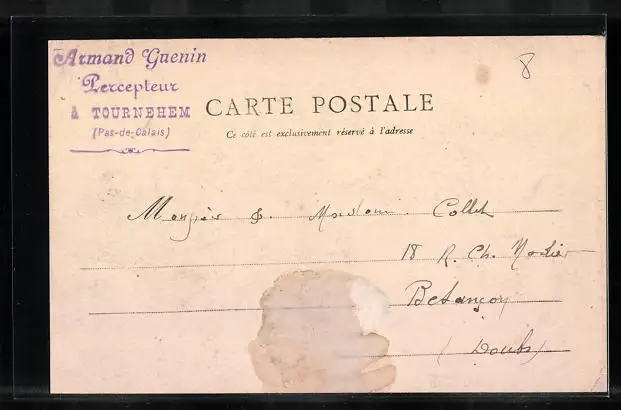 Armand Guenin
Percepteur
à TOURNEHEM
(Pas-de-Calais)
8
CARTE POSTALE
Ce côté est exclusivement réservé à l'adresse
Collet
18 R. Ch. Nodier
Besançon
(Doubs)